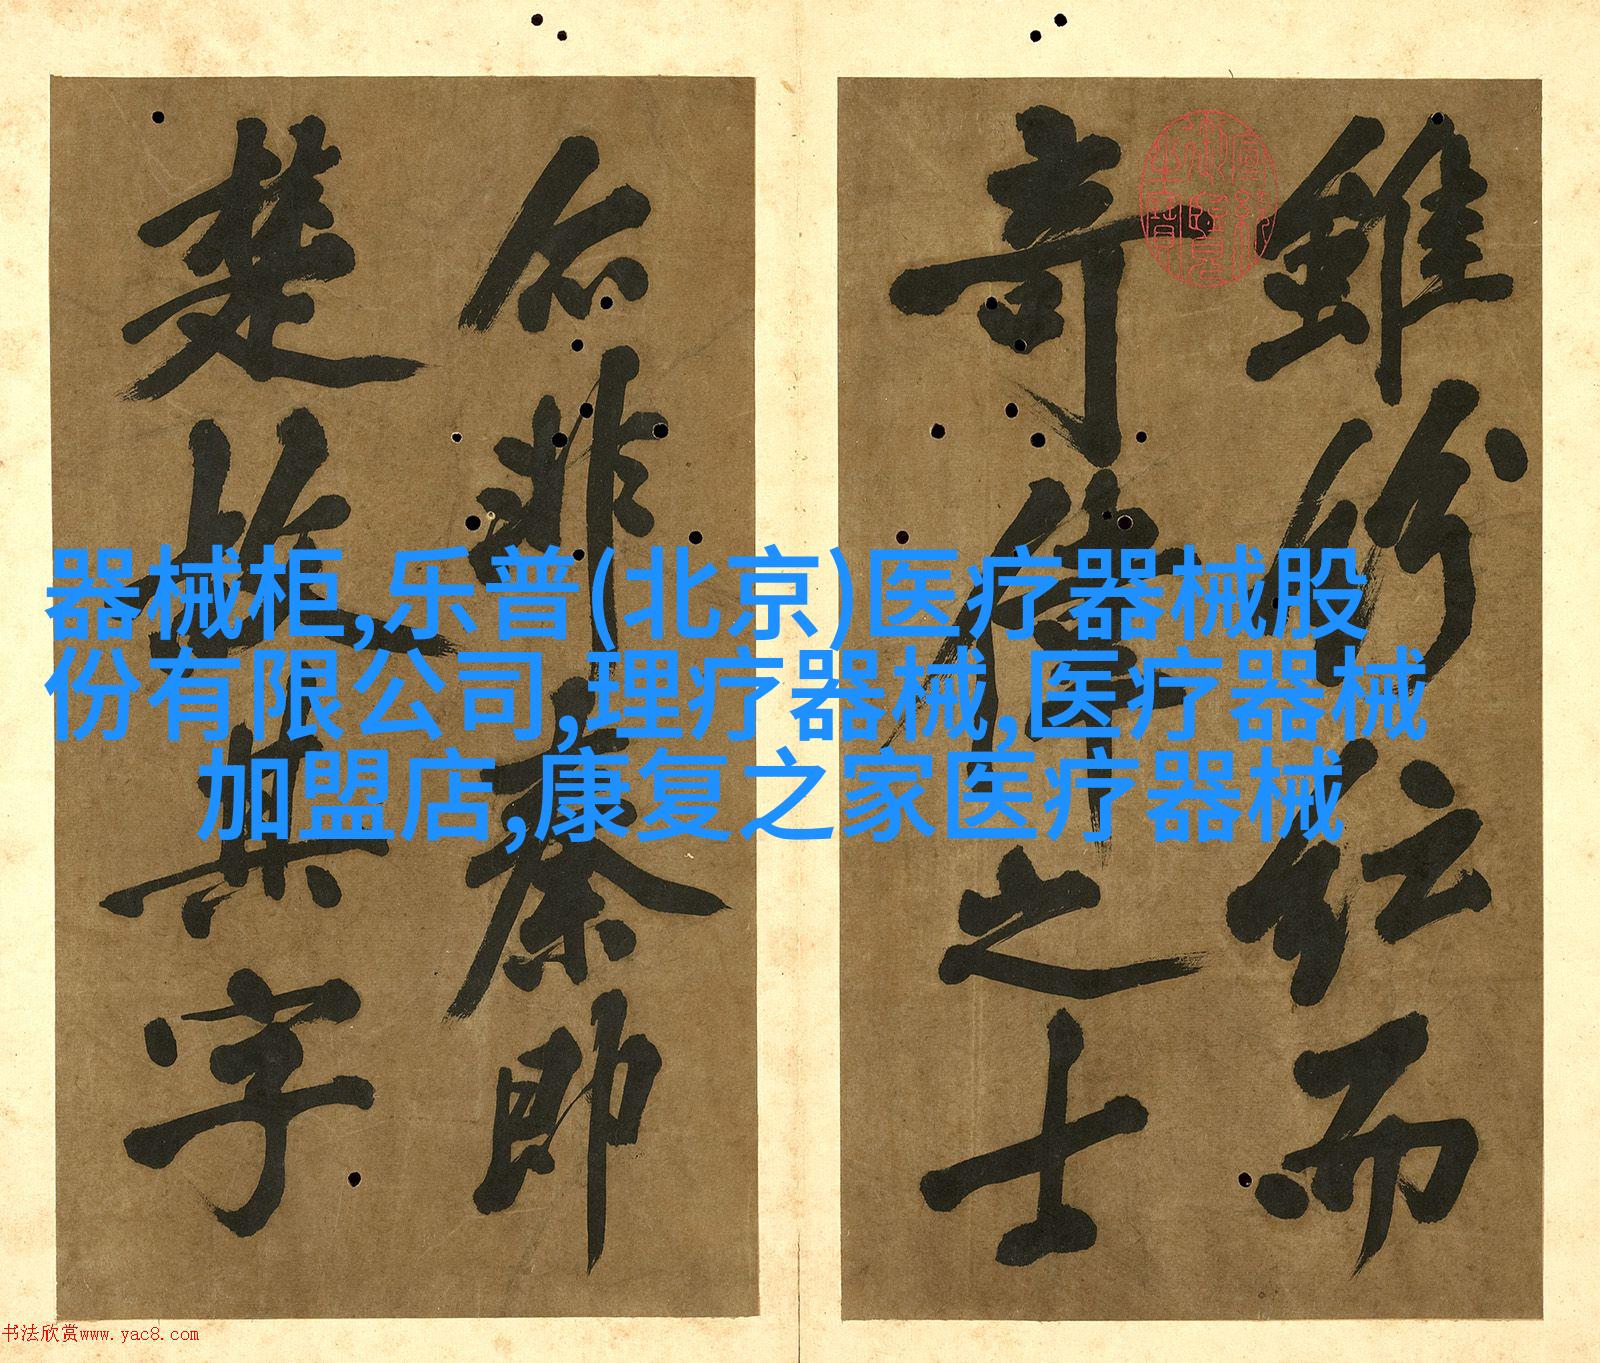 雖紛紜而
奇偉之士
非秦即
楚故其字
器械柜,乐普(北京)医疗器械股
份有限公司,理疗器械,医疗器械
加盟店,康复之家医疗器械
书法欣赏www.yac8.com